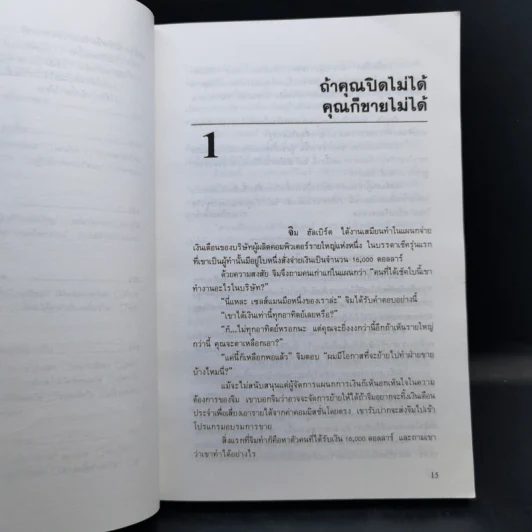 ถ้าคุณปิดไม่ได้
คุณก็ขายไม่ได้
1
จิม ฮัลเบิร์ต ได้งานเสมียนทำในแผนกจ่าย
เงินเดือนของบริษัทผู้ผลิตคอมพิวเตอร์รายใหญ่แห่งหนึ่ง ในบรรดาเช็ครุ่นแรก
ที่เขาเป็นผู้ทำนั้นมีอยู่ใบหนึ่งสั่งจ่ายเงินเป็นจำนวน 16,000 ดอลลาร์
ด้วยความสงสัย จิมจึงถามคนเก่าแก่ในแผนกว่า "คนที่ได้เช็คใบนี้เขา
ทำงานอะไรในบริษัท?"
"นี่แหละ เซลส์แมนมือหนึ่งของเราล่ะ" จิมได้รับคำตอบอย่างนี้
"เขาได้เงินเท่านี้ทุกอาทิตย์เลยหรือ?"
"ก็...ไม่ทุกอาทิตย์หรอกนะ แต่คุณจะยิ่งงงกว่านี้อีกถ้าเห็นรายใหญ่
กว่านี้ คุณจะตาเหลือกเอา?"
"แค่นี้ก็เหลือกพอแล้ว" จิมตอบ "ผมมีโอกาสที่จะย้ายไปทำฝ่ายขาย
บ้างไหมนี่?"
แม้จะไม่สนับสนุนแต่ผู้จัดการแผนกการเงินก็เห็นอกเห็นใจในความ
ต้องการของจิม เขาบอกจิมว่าอาจจะจัดการย้ายให้ได้ถ้าจิมอยากจะทิ้งเงินเดือน
ประจำเพื่อเสี่ยงเอารายได้จากค่าคอมมิสชันโดยตรง เขารับปากจะส่งจิมไปเข้า
โปรแกรมอบรมการขาย
สิ่งแรกที่จิมทำก็คือหาตัวคนที่ได้รับเงิน 16,000 ดอลลาร์ และถามเขา
ว่าเขาทำได้อย่างไร
15